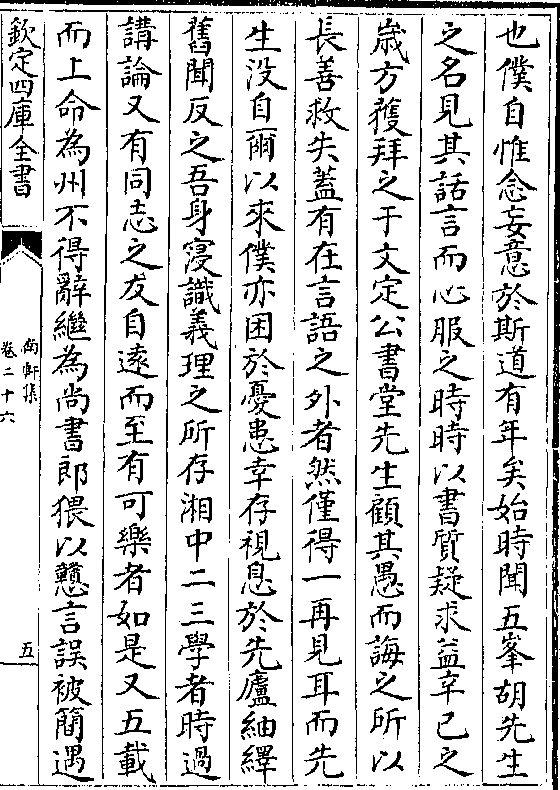 也僕自惟念妄意於斯道有年矣始時聞五峯胡先生
之名見其話言而心服之時時以書質疑求益辛巳之
歲方獲拜之于文定公書堂先生顧其愚而誨之所以
長善救失蓋有在言語之外者然僅得一再見耳而先
生没自爾以來僕亦困於憂患幸存視息於先廬紬繹
舊聞反之吾身寖識義理之所存湘中二三學者時過
講論又有同志之友自遠而至有可樂者如是又五載
而上命為州不得辭繼為尚書郎猥以戇言誤被簡遇
欽定四庫全書
南軒集
卷二十六
五